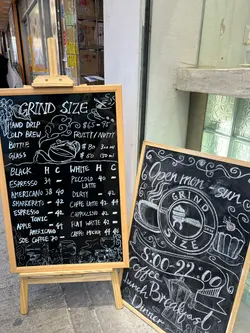 GRIND SIZE
HAND DRIP
COLD BREW FRUITY/NUTTY
BOTTLE
GLASS
BLACK H C WHITE H C
ESPRESSO 34 — PICCOLO 40 —
LATTE
AMERICANO 38 40 DIRTY — 44
SHAKERATO — 42 CAFFE LATTE 42 44
ESPRESSO — 42 CAPPUCCINO 42
TONIC FLAT WHITE 42
APPLE — 42 CAFFE MOCHA 44
AMERICANO
SOE COFFEE
Open mon - sun
GRIND
SIZE
8:00-22:00
Coffee
Lunch Breakfast
Dinner